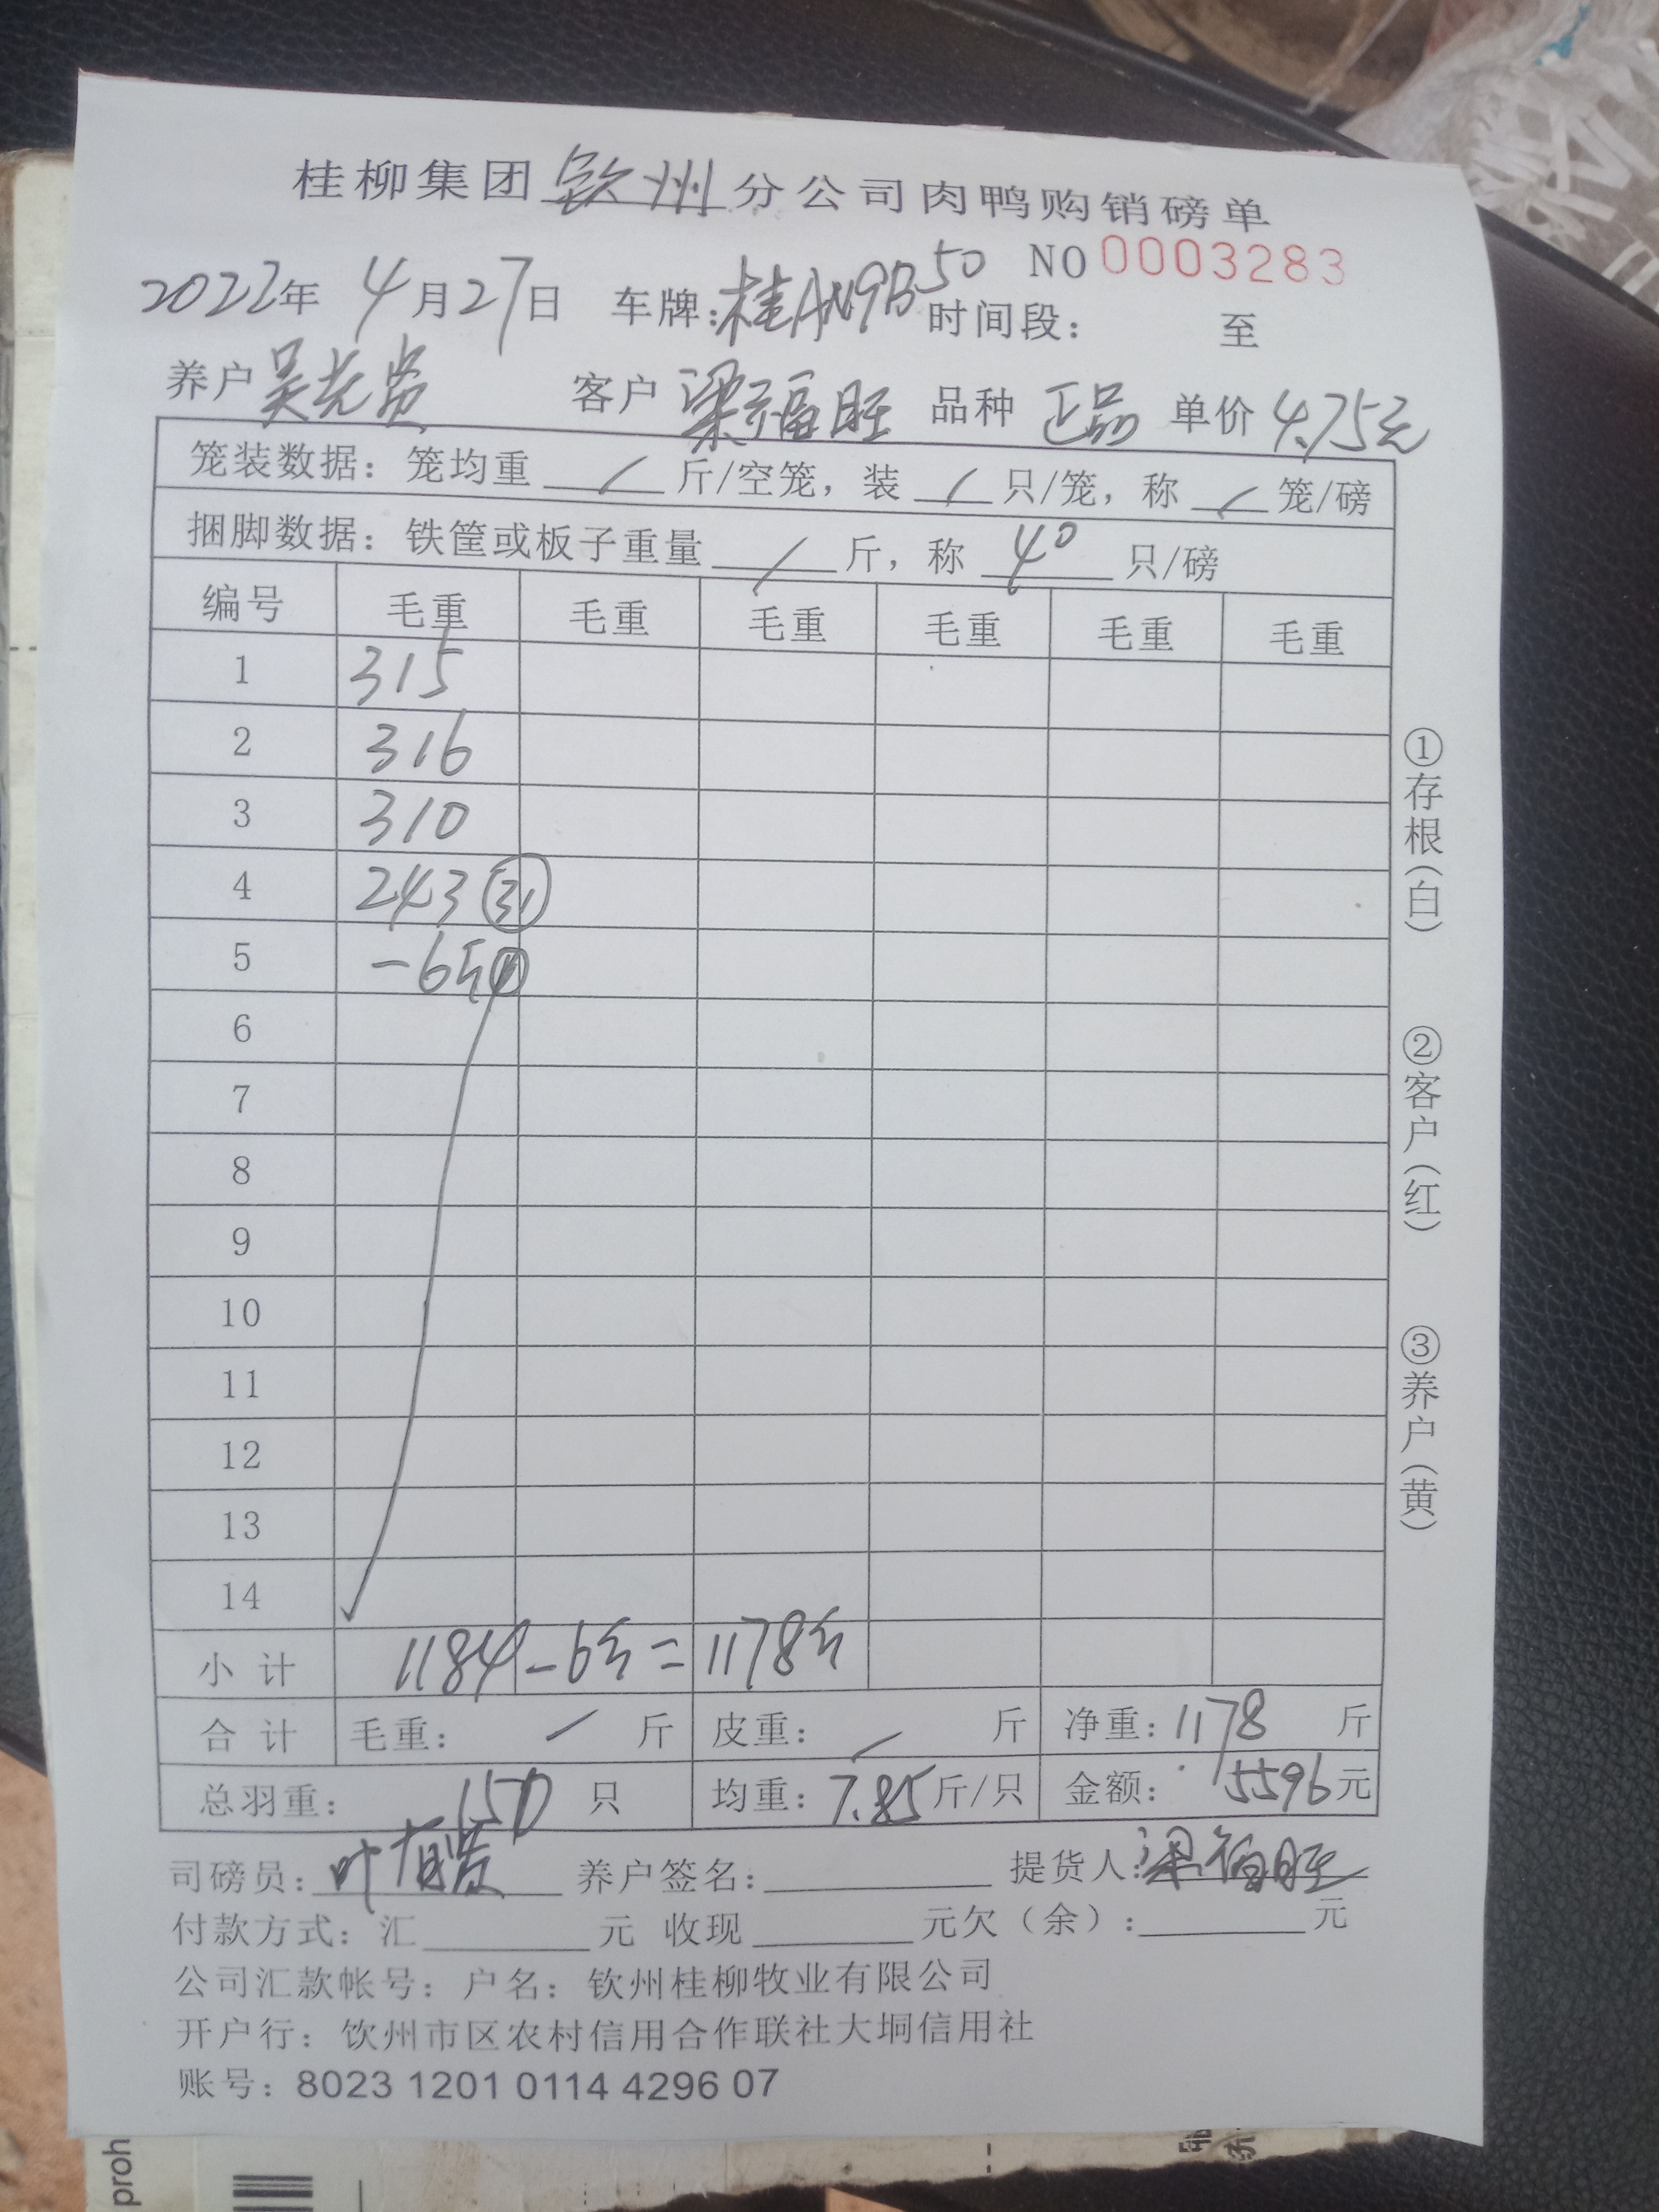 桂柳集团钦州分公司肉鸭购销磅单
NO 0003283
2022年 4月27日 车牌:桂AN9B50 时间段: 至
养户 吴光贤 客户 梁福旺 品种 正品 单价 4.75元
笼装数据: 笼均重 / 斤/空笼, 装 / 只/笼, 称 / 笼/磅
捆脚数据: 铁筐或板子重量 / 斤, 称 40 只/磅
编号 毛重 毛重 毛重 毛重 毛重 毛重
1 315
2 316
3 310
4 243 ㉛
5 -6斤
6
7
8
9
10
11
12
13
14
小计 1184-6斤=1178斤
合计 毛重: / 斤 皮重: / 斤 净重: 1178 斤
总羽重: 150 只 均重: 7.85斤/只 金额: 5596元
司磅员: 养户签名: 提货人:梁福旺
付款方式: 汇 元 收现 元欠(余): 元
公司汇款帐号: 户名: 钦州桂柳牧业有限公司
开户行: 钦州市区农村信用合作联社大垌信用社
账号: 8023 1201 0114 4296 07
①存根(白)
②客户(红)
③养户(黄)
proh